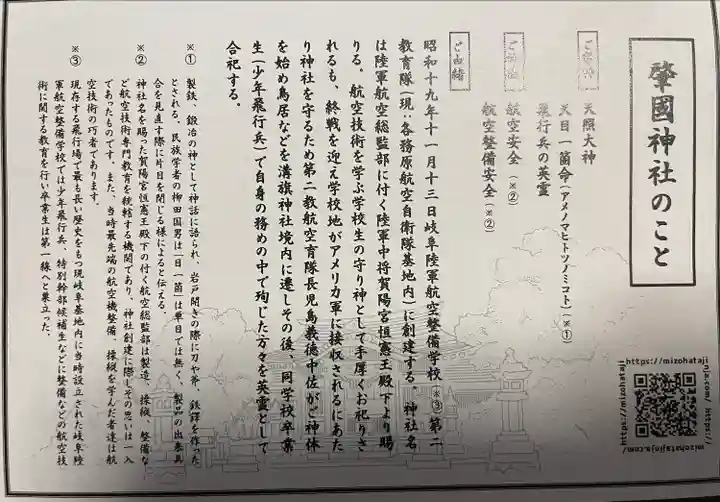 肇國神社のこと
ご祭神
天照大神
天目一箇命(アメノマヒトツノミコト)(※①)
飛行兵の英霊
航空安全(※②)
航空整備安全(※②)
ご由緒
昭和十九年十一月十三日岐阜陸軍航空整備学校(※③)第二
教育隊(現:各務原航空自衛隊基地内)に創建する。神社名
は陸軍航空総監部に付く陸軍中将賀陽宮恒憲王殿下より賜
りる。航空技術を学ぶ学校生の守り神として手厚くお祀りさ
れるも、終戦を迎え学校地がアメリカ軍に接収されるにあた
り神社を守るため第二教航空育隊長児島義徳中佐がご神体
を始め鳥居などを溝旗神社境内に遷しその後、同学校卒業
生(少年飛行兵)で自身の務めの中で殉じた方々を英霊として
合祀する。
※① 製鉄、鍛冶の神として神話に語られ、岩戸開きの際に刀や斧、鉄鐸を作った
とされる、民族学者の柳田国男は「目一箇」は単目では無く、製品の出来具
合を見直す際に片目を閉じる様によると伝える。
※② 神社名を賜った賀陽宮恒憲王殿下の付く航空総監部は製造、操縦、整備な
ど航空技術専門教育を統轄する機関であり、神社創建に際しその思いは一入
であったものです。また、当時最先端の航空機整備、操縦を学んだ者達は航
空技術の巧者であります。
※③ 現存する飛行場で最も長い歴史をもつ現岐阜基地内に当時設立された岐阜陸
軍航空整備学校では少年飛行兵、特別幹部候補生などに整備などの航空技
術に関する教育を行い卒業生は第一線へと巣立った。
https://mizohatajinja.com/
https://mizohatajinja.com/